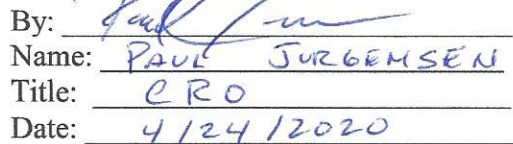 By:
Name: PAUL JURGEMSEN
Title: CRO
Date: 4/24/2020